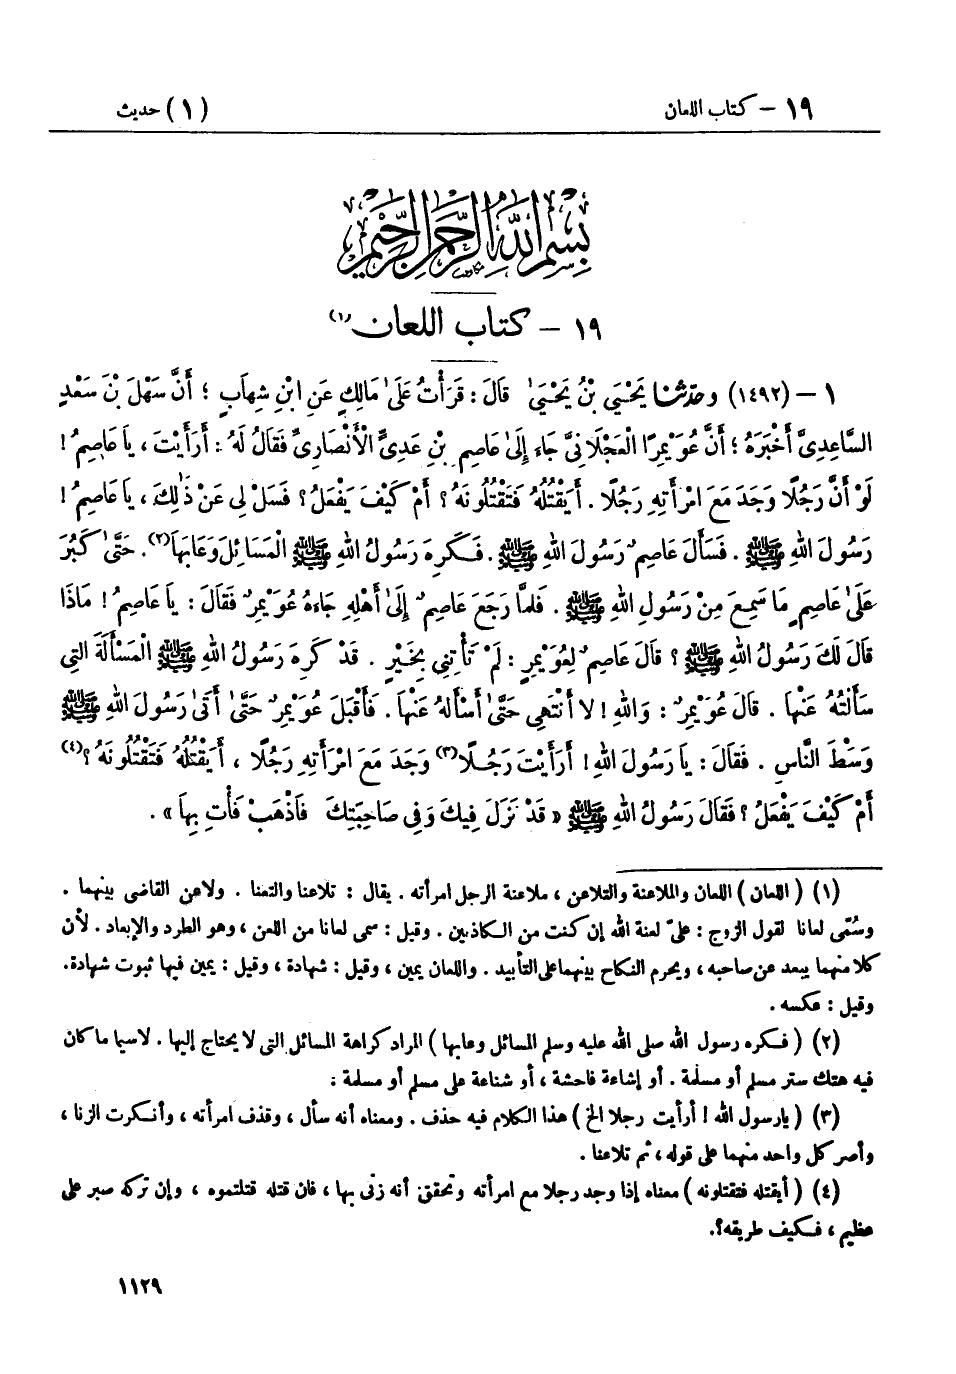 ١٩ – كتاب اللعان (١) حديث
بِسْمِ اللهِ الرَّحْمٰنِ الرَّحِيمِ
١٩ – كتاب اللعان(١)
١ – (١٤٩٢) وحدّثنا يَحْيَىٰ بْنُ يَحْيَىٰ قَالَ: قَرَأْتُ عَلَىٰ مَالِكٍ عَنِ ابْنِ شِهَابٍ ؛ أَنَّ سَهْلَ بْنَ سَعْدٍ
السَّاعِدِيَّ أَخْبَرَهُ ؛ أَنَّ عُوَيْمِرًا الْعَجْلَانِيَّ جَاءَ إِلَىٰ عَاصِمِ بْنِ عَدِيٍّ الْأَنْصَارِيِّ فَقَالَ لَهُ : أَرَأَيْتَ ، يَا عَاصِمُ !
لَوْ أَنَّ رَجُلًا وَجَدَ مَعَ امْرَأَتِهِ رَجُلًا . أَيَقْتُلُهُ فَتَقْتُلُونَهُ ؟ أَمْ كَيْفَ يَفْعَلُ ؟ فَسَلْ لِي عَنْ ذَٰلِكَ ، يَا عَاصِمُ !
رَسُولَ اللهِ ﷺ . فَسَأَلَ عَاصِمٌ رَسُولَ اللهِ ﷺ . فَكَرِهَ رَسُولُ اللهِ ﷺ الْمَسَائِلَ وَعَابَهَا(٢). حَتَّىٰ كَبُرَ
عَلَىٰ عَاصِمٍ مَا سَمِعَ مِنْ رَسُولِ اللهِ ﷺ . فَلَمَّا رَجَعَ عَاصِمٌ إِلَىٰ أَهْلِهِ جَاءَهُ عُوَيْمِرٌ فَقَالَ : يَا عَاصِمُ ! مَاذَا
قَالَ لَكَ رَسُولُ اللهِ ﷺ ؟ قَالَ عَاصِمٌ لِعُوَيْمِرٍ : لَمْ تَأْتِنِي بِخَيْرٍ . قَدْ كَرِهَ رَسُولُ اللهِ ﷺ الْمَسْأَلَةَ الَّتِي
سَأَلْتُهُ عَنْهَا . قَالَ عُوَيْمِرٌ : وَاللهِ ! لَا أَنْتَهِي حَتَّىٰ أَسْأَلَهُ عَنْهَا . فَأَقْبَلَ عُوَيْمِرٌ حَتَّىٰ أَتَىٰ رَسُولَ اللهِ ﷺ
وَسْطَ النَّاسِ . فَقَالَ : يَا رَسُولَ اللهِ ! أَرَأَيْتَ رَجُلًا(٣) وَجَدَ مَعَ امْرَأَتِهِ رَجُلًا ، أَيَقْتُلُهُ فَتَقْتُلُونَهُ ؟(٤)
أَمْ كَيْفَ يَفْعَلُ ؟ فَقَالَ رَسُولُ اللهِ ﷺ « قَدْ نَزَلَ فِيكَ وَفِي صَاحِبَتِكَ فَاذْهَبْ فَأْتِ بِهَا » .
(١) ( اللعان ) اللعان والملاعنة والتلاعن ، ملاعنة الرجل امرأته . يقال : تلاعنا والتعنا . ولاعن القاضى بينهما .
وسُمّى لعانا لقول الزوج : علىّ لعنة الله إن كنت من الكاذبين . وقيل : سمى لعانا من اللعن ، وهو الطرد والإبعاد . لأن
كلا منهما يبعد عن صاحبه ، ويحرم النكاح بينهما على التأبيد . واللعان يمين ، وقيل : شهادة ، وقيل : يمين فيها ثبوت شهادة.
وقيل : عكسه .
(٢) ( فكره رسول الله صلى الله عليه وسلم المسائل وعابها ) المراد كراهة المسائل التى لا يحتاج إليها . لاسيما ما كان
فيه هتك ستر مسلم أو مسلمة . أو إشاعة فاحشة ، أو شناعة على مسلم أو مسلمة :
(٣) ( يارسول الله ! أرأيت رجلا الخ ) هذا الكلام فيه حذف . ومعناه أنه سأل ، وقذف امرأته ، وأنكرت الزنا ،
وأصر كل واحد منهما على قوله ، ثم تلاعنا .
(٤) ( أيقتله فتقتلونه ) معناه إذا وجد رجلا مع امرأته وتحقق أنه زنى بها ، فان قتله قتلتموه ، وإن تركه صبر على
عظيم ، فكيف طريقه؟.
١١٢٩